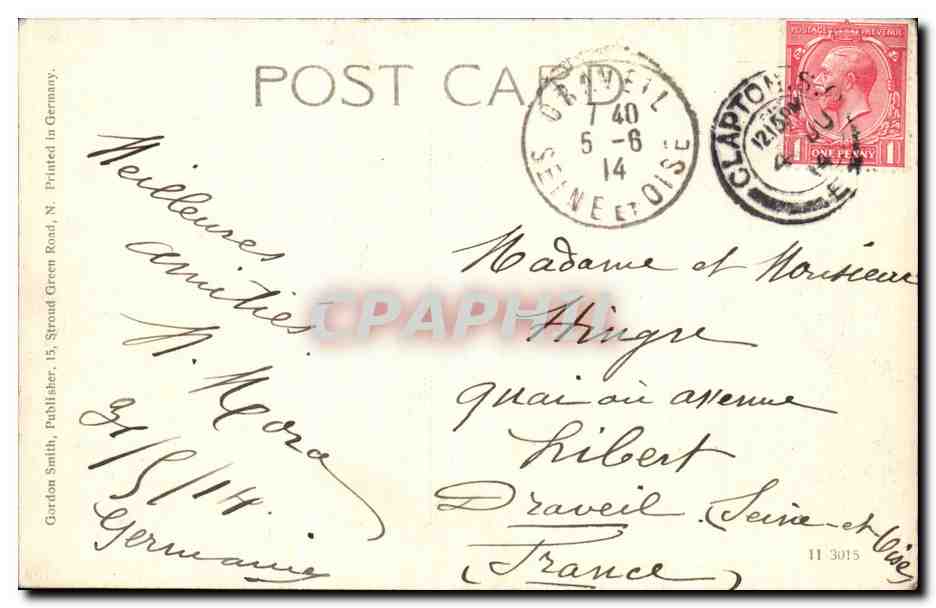 POST CARD
DRAVEIL
7 40
5 - 6
14
SEINE ET OISE
CLAPTON S.O
12.15 PM
14
POSTAGE REVENUE
1 ONE PENNY 1
Gordon Smith, Publisher, 15, Stroud Green Road, N. Printed in Germany.
Meilleures
amitiés
Mora
31/5/14.
Germaine
Madame et Monsieur
Hingre
quai ou avenue
Libert
Draveil (Seine-et-Oise)
(France)
11 3015
CPAPHIL